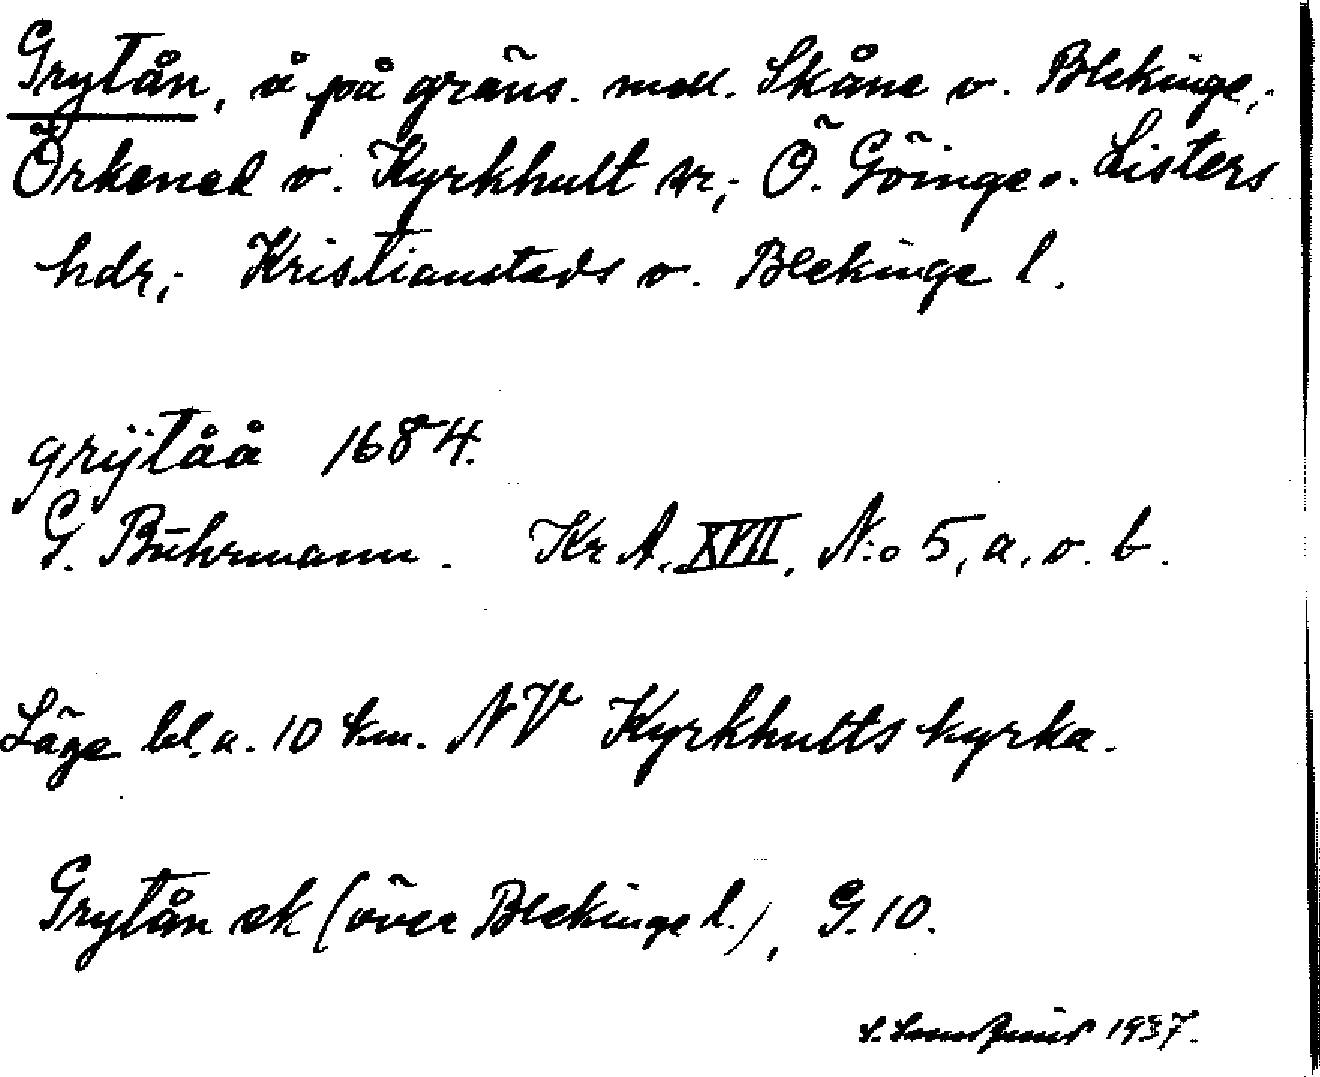 Grytån, å på gräns. mell. Skåne o. Blekinge;
Örkened o. Kyrkhult sr; Ö. Göinge o. Listers
hdr; Kristianstads o. Blekinge l.
grijtåå 1684.
G. Buhrmann. Kr A. XVII, N:o 5, a, o. b.
Läge bl. a. 10 km. NV Kyrkhults kyrka.
Grytån ek (över Blekinge l.), G. 10.
1937.